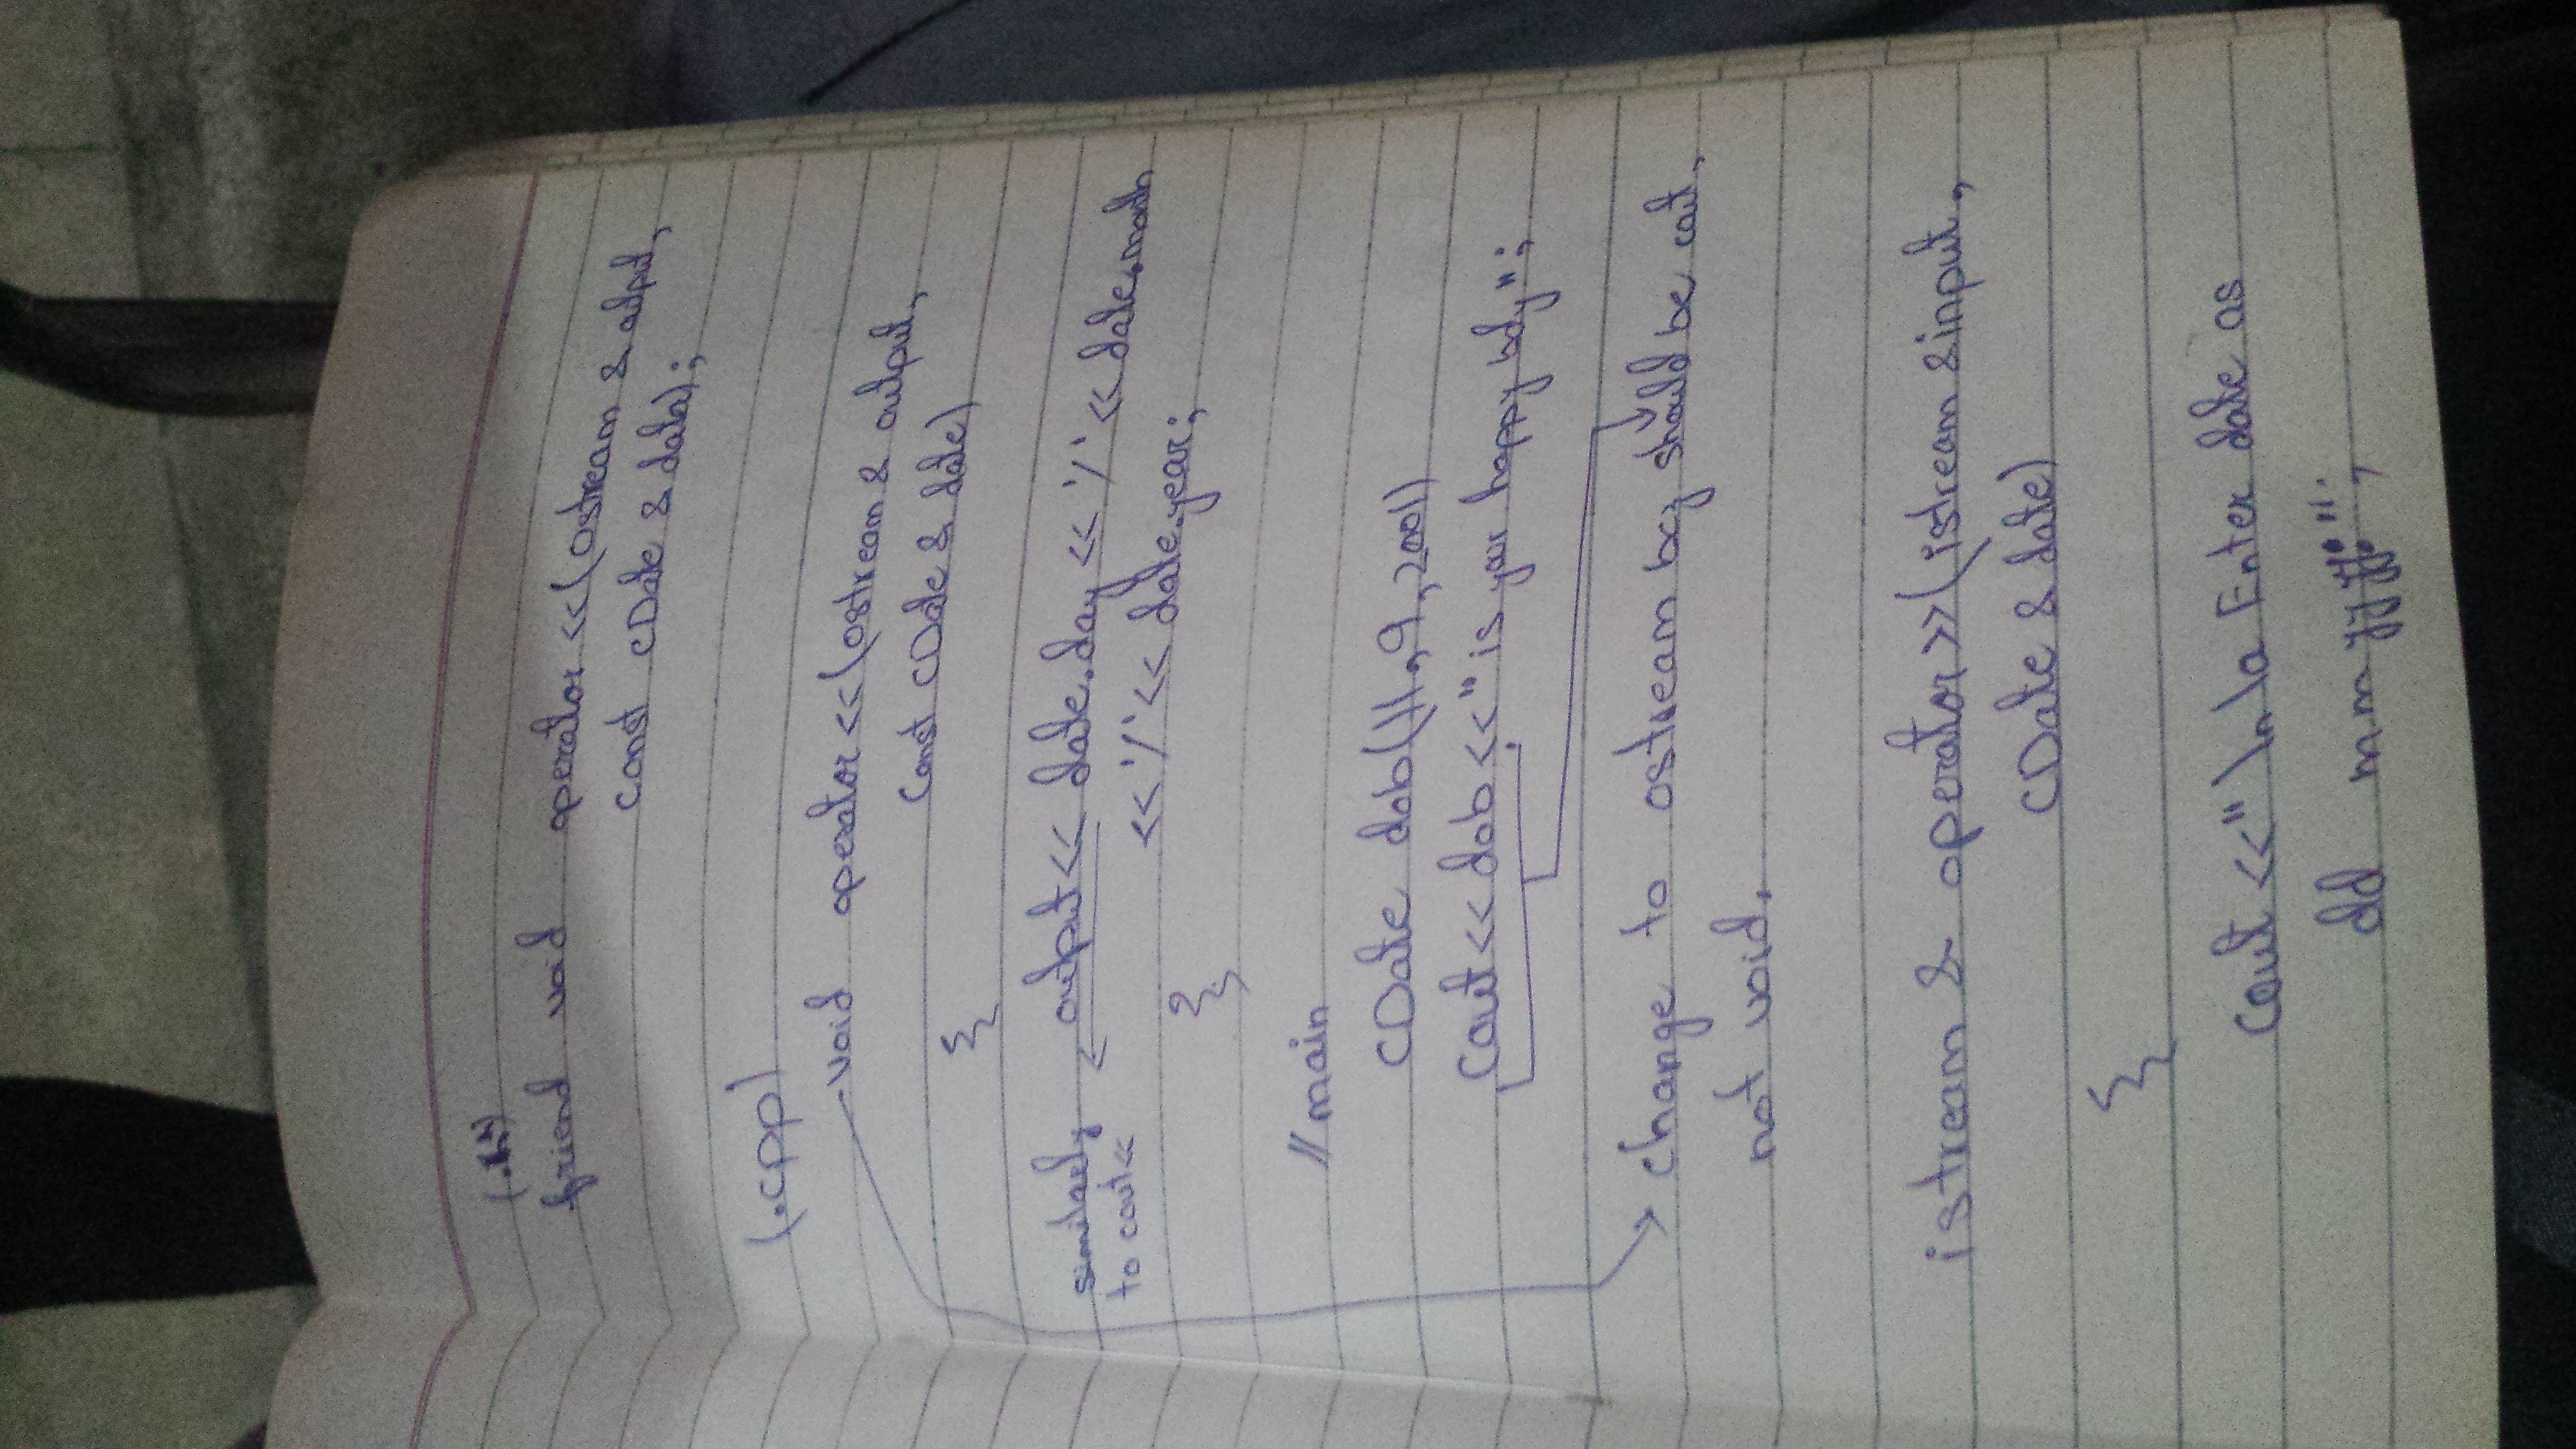 (.h)
friend void operator <<(ostream & output,
const CDate & data);
(.cpp)
void operator <<(ostream & output,
const CDate & date)
{
similarly output << date.day << '/' << date.month
to cout<<
<< '/' << date.year;
}
//main
CDate dob(11,9,2001)
Cout << dob << " is your happy bdy";
change to ostream bcz should be cout,
not void.
istream & operator >>(istream &input,
CDate & date)
{
Cout <<" \n \a Enter date as
dd mm yyyy: ";